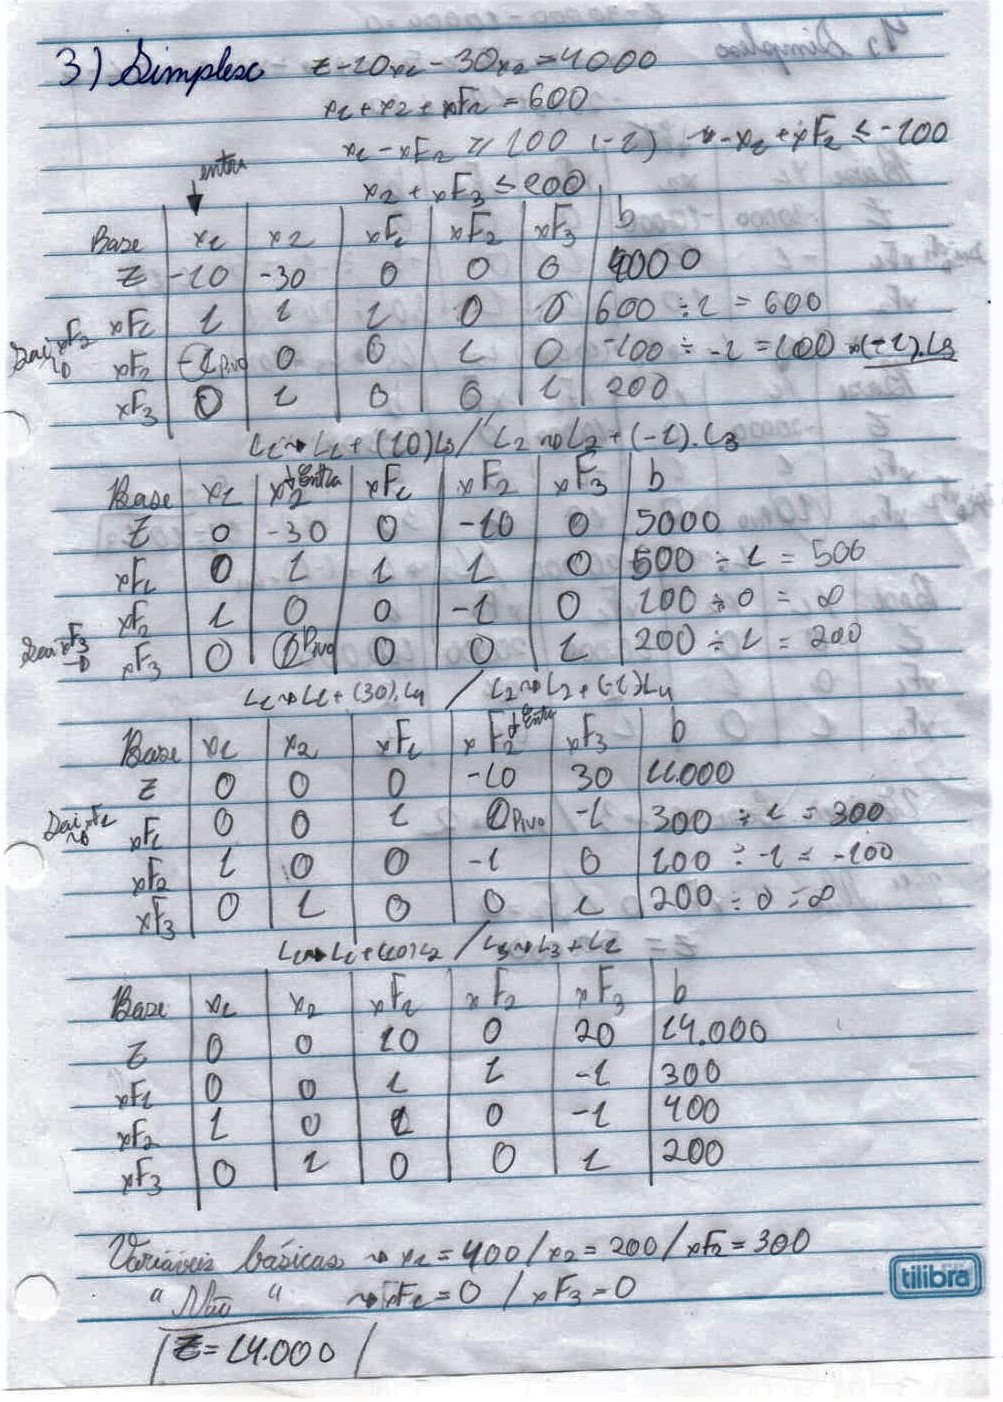 3) Simplesc z-10x1-30x2=4000
x1+x2+xF1=600
x1-xF2≥100 (-1) → -x1+xF2≤-100
entra
x2+xF3≤200
Base x1 x2 xF1 xF2 xF3 b
Z -10 -30 0 0 0 4000
xF1 1 1 1 0 0 600÷1=600
Sai xF2 → xF2 -1 Pivo 0 0 1 0 -100÷-1=100 →(-1).L3
xF3 0 1 0 0 1 200
L1→L1+(10)L3/L2→L2+(-1).L3
Base x1 x2 ↓Entra xF1 xF2 xF3 b
Z 0 -30 0 -10 0 5000
xF1 0 1 1 1 0 500÷1=500
xF2 1 0 0 -1 0 100÷0=∞
Sai xF3 → xF3 0 1 Pivo 0 0 1 200÷1=200
L1→L1+(30).L4 / L2→L2+(-1)L4
Base x1 x2 xF1 xF2 ↓Entra xF3 b
Z 0 0 0 -10 30 11.000
Sai xF1 → xF1 0 0 1 1 Pivo -1 300÷1=300
xF2 1 0 0 -1 0 100÷-1=-100
xF3 0 1 0 0 1 200÷0=∞
L1→L1+(10)L2 / L3→L3+L2
Base x1 x2 xF1 xF2 xF3 b
Z 0 0 10 0 20 14.000
xF1 0 0 1 1 -1 300
xF2 1 0 1 0 -1 400
xF3 0 1 0 0 1 200
Variáveis básicas → x1=400/x2=200/xF2=300
" Não " → xF1=0 / xF3=0
tilibra
Z=14.000